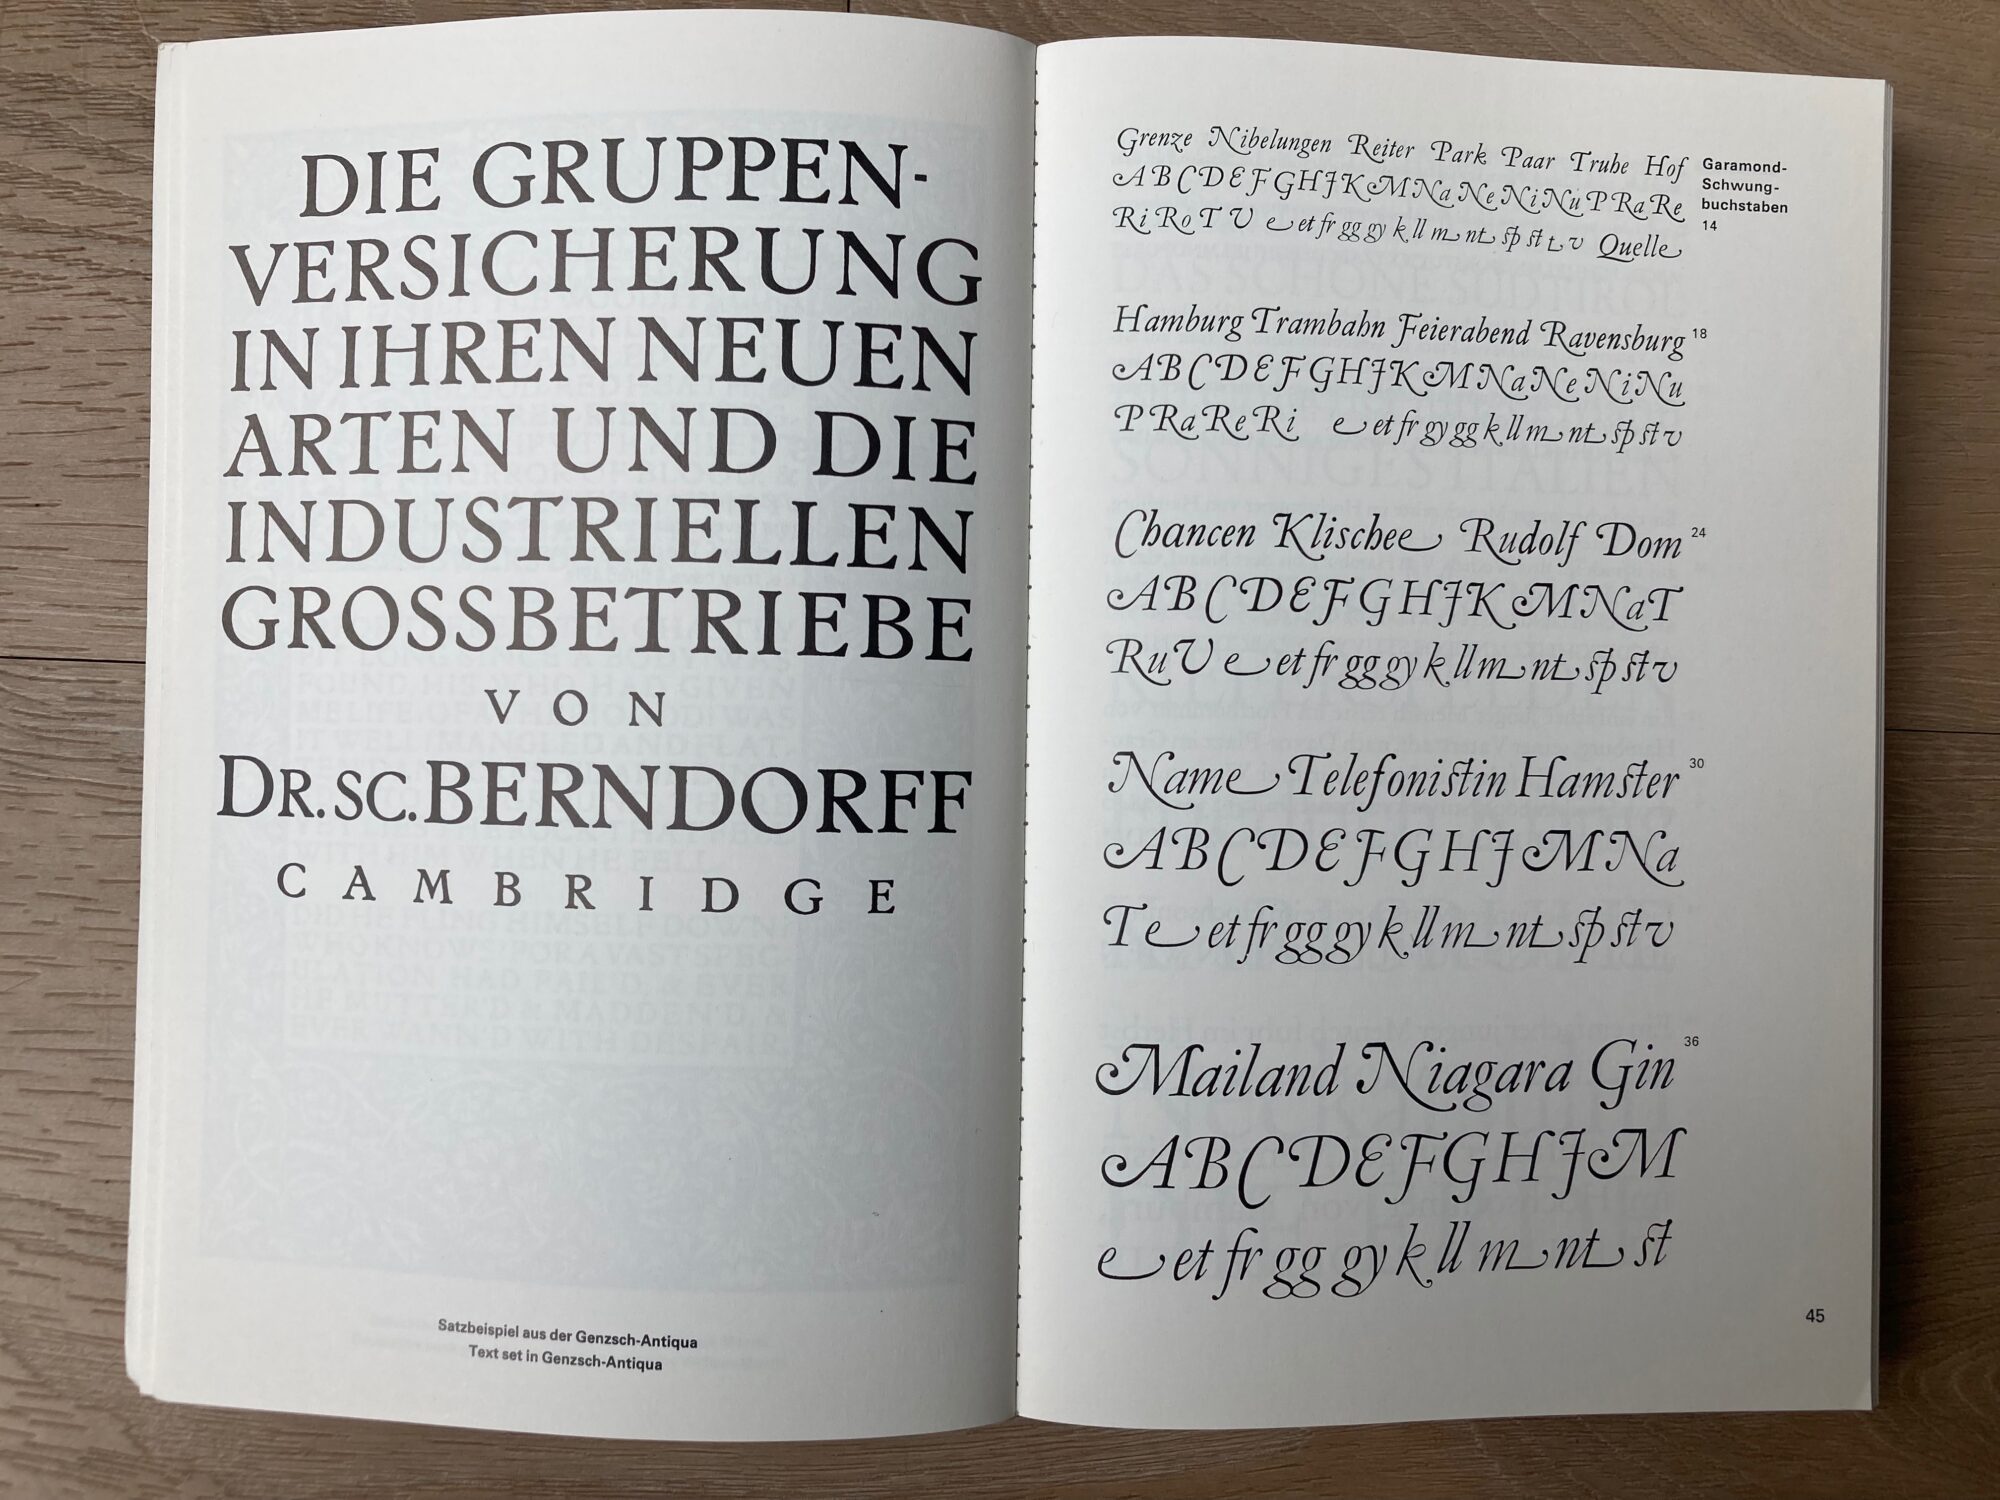 DIE GRUPPEN-
VERSICHERUNG
IN IHREN NEUEN
ARTEN UND DIE
INDUSTRIELLEN
GROSSBETRIEBE
VON
DR. SC. BERNDORFF
CAMBRIDGE
Satzbeispiel aus der Genzsch-Antiqua
Text set in Genzsch-Antiqua
Grenze Nibelungen Reiter Park Paar Truhe Hof
A B C D E F G H J K M Na Ne Ni Nu P Ra Re
Ri Ro T V e et fr gg gy k ll m nt sp st t v Quelle
Garamond-
Schwung-
buchstaben
14
Hamburg Trambahn Feierabend Ravensburg 18
A B C D E F G H J K M Na Ne Ni Nu
P Ra Re Ri e et fr gy gg k ll m nt sp st v
Chancen Klischee Rudolf Dom 24
A B C D E F G H J K M Na T
Ru V e et fr gg gy k ll m nt sp st v
Name Telefonistin Hamster 30
A B C D E F G H J M Na
T e et fr gg gy k ll m nt sp st v
Mailand Niagara Gin 36
A B C D E F G H J M
e et fr gg gy k ll m nt st
45